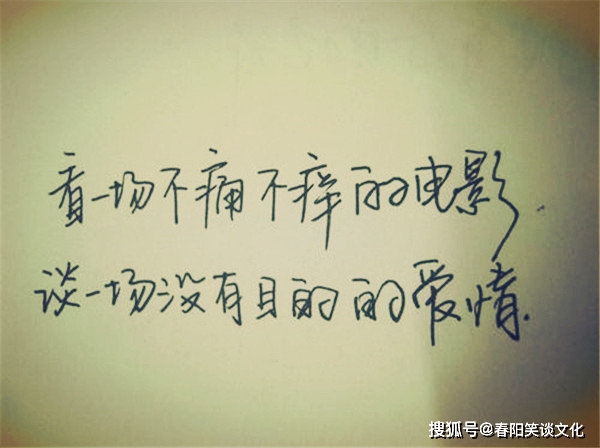 看一场不痛不痒的电影.
谈一场没有目的的爱情.
搜狐号@春阳笑谈文化